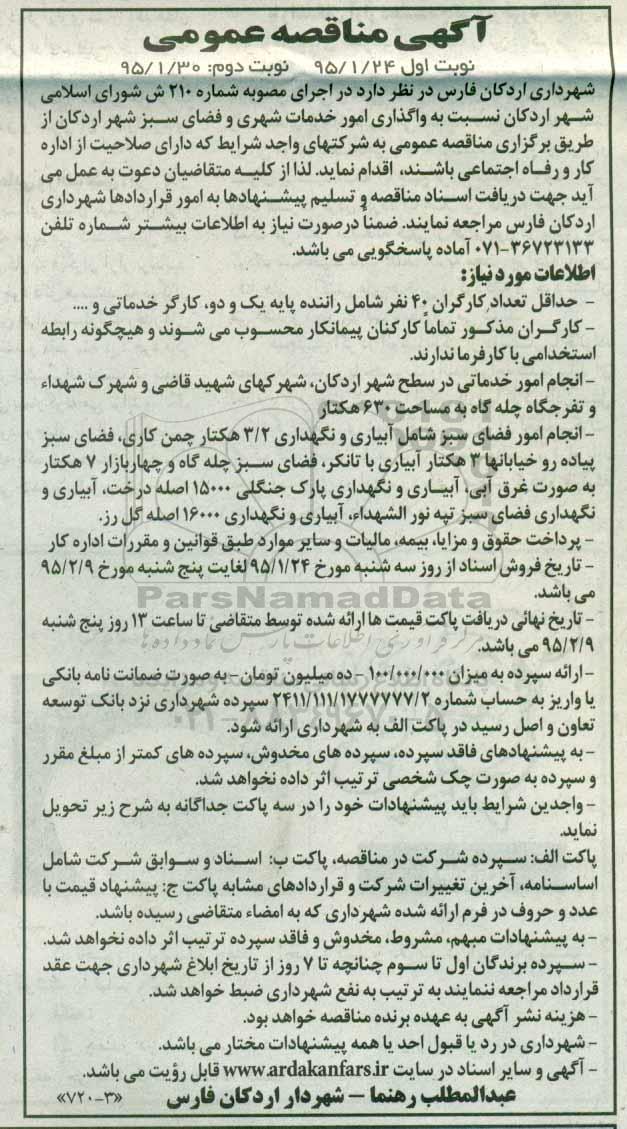 آگهی مناقصه عمومی
نوبت اول ۹۵/۱/۲۴ نوبت دوم: ۹۵/۱/۳۰
شهرداری اردکان فارس در نظر دارد در اجرای مصوبه شماره ۲۱۰ ش شورای اسلامی
شهر اردکان نسبت به واگذاری امور خدمات شهری و فضای سبز شهر اردکان از
طریق برگزاری مناقصه عمومی به شرکتهای واجد شرایط که دارای صلاحیت از اداره
کار و رفاه اجتماعی باشند، اقدام نماید. لذا از کلیه متقاضیان دعوت به عمل می
آید جهت دریافت اسناد مناقصه و تسلیم پیشنهادها به امور قراردادها شهرداری
اردکان فارس مراجعه نمایند. ضمناً درصورت نیاز به اطلاعات بیشتر شماره تلفن
۰۷۱-۳۶۷۲۳۱۳۳ آماده پاسخگویی می باشد.
اطلاعات مورد نیاز:
- حداقل تعداد کارگران ۴۰ نفر شامل راننده پایه یک و دو، کارگر خدماتی و ....
- کارگران مذکور تماماً کارکنان پیمانکار محسوب می شوند و هیچگونه رابطه
استخدامی با کارفرما ندارند.
- انجام امور خدماتی در سطح شهر اردکان، شهرکهای شهید قاضی و شهرک شهداء
و تفرجگاه چله گاه به مساحت ۶۳۰ هکتار
- انجام امور فضای سبز شامل آبیاری و نگهداری ۳/۲ هکتار چمن کاری، فضای سبز
پیاده رو خیابانها ۳ هکتار آبیاری با تانکر، فضای سبز چله گاه و چهاربازار ۷ هکتار
به صورت غرق آبی، آبیاری و نگهداری پارک جنگلی ۱۵۰۰۰ اصله درخت، آبیاری و
نگهداری فضای سبز تپه نور الشهداء، آبیاری و نگهداری ۱۶۰۰۰ اصله گل رز.
- پرداخت حقوق و مزایا، بیمه، مالیات و سایر موارد طبق قوانین و مقررات اداره کار
- تاریخ فروش اسناد از روز سه شنبه مورخ ۹۵/۱/۲۴ لغایت پنج شنبه مورخ ۹۵/۲/۹
می باشد.
ParsNamadData
- تاریخ نهائی دریافت پاکت قیمت ها ارائه شده توسط متقاضی تا ساعت ۱۳ روز پنج شنبه
۹۵/۲/۹ می باشد.
- ارائه سپرده به میزان ۱۰۰/۰۰۰/۰۰۰ - ده میلیون تومان - به صورت ضمانت نامه بانکی
یا واریز به حساب شماره ۲۴۱۱/۱۱۱/۱۷۷۷۷۷۷/۲ سپرده شهرداری نزد بانک توسعه
تعاون و اصل رسید در پاکت الف به شهرداری ارائه شود.
- به پیشنهادهای فاقد سپرده، سپرده های مخدوش، سپرده های کمتر از مبلغ مقرر
و سپرده به صورت چک شخصی ترتیب اثر داده نخواهد شد.
- واجدین شرایط باید پیشنهادات خود را در سه پاکت جداگانه به شرح زیر تحویل
نماید.
پاکت الف: سپرده شرکت در مناقصه، پاکت ب: اسناد و سوابق شرکت شامل
اساسنامه، آخرین تغییرات شرکت و قراردادهای مشابه پاکت ج: پیشنهاد قیمت با
عدد و حروف در فرم ارائه شده شهرداری که به امضاء متقاضی رسیده باشد.
- به پیشنهادات مبهم، مشروط، مخدوش و فاقد سپرده ترتیب اثر داده نخواهد شد.
- سپرده برندگان اول تا سوم چنانچه تا ۷ روز از تاریخ ابلاغ شهرداری جهت عقد
قرارداد مراجعه ننمایند به ترتیب به نفع شهرداری ضبط خواهد شد.
- هزینه نشر آگهی به عهده برنده مناقصه خواهد بود.
- شهرداری در رد یا قبول احد یا همه پیشنهادات مختار می باشد.
- آگهی و سایر اسناد در سایت www.ardakanfars.ir قابل رؤیت می باشد.
عبدالمطلب رهنما - شهردار اردکان فارس «۷۲۰-۳»